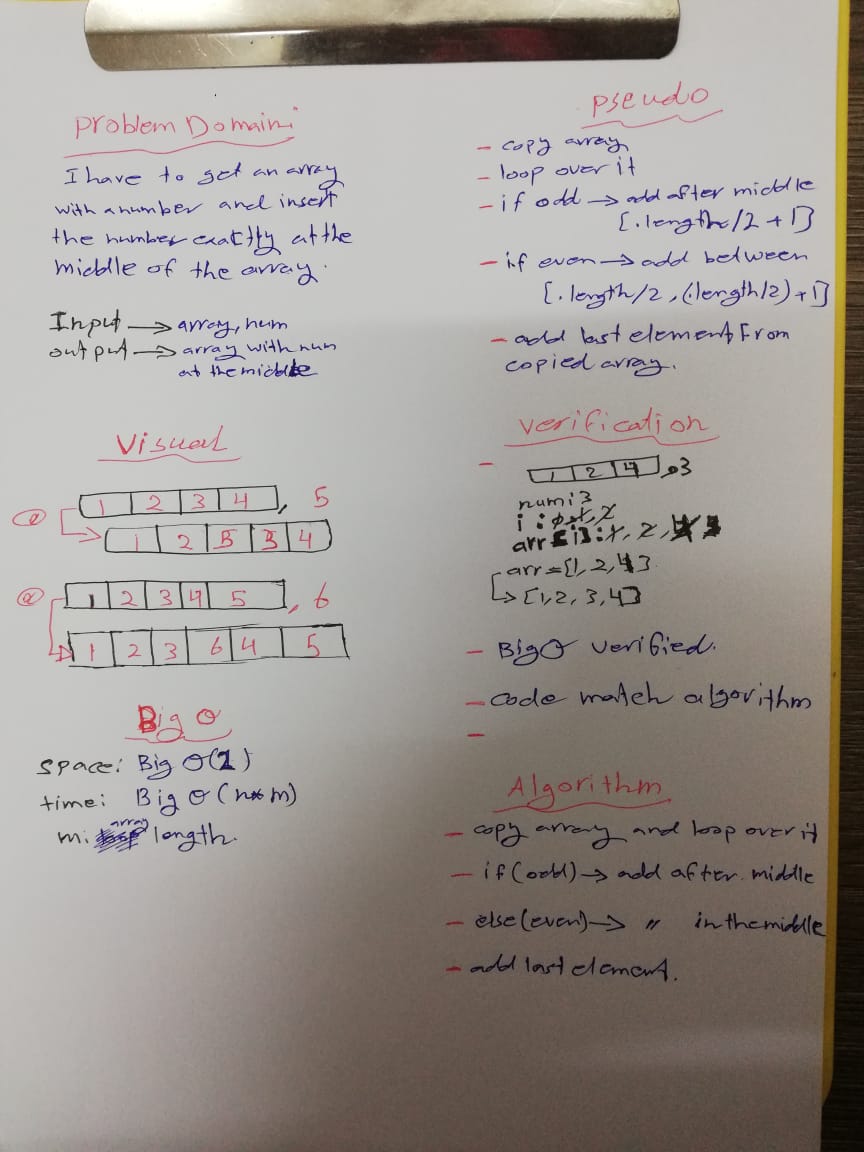 Problem Domain:
I have to get an array
with a number and insert
the number exactly at the
middle of the array.
Input → array, num
output → array with num
at the middle
Visual
1 2 3 4 , 5
1 2 5 3 4
1 2 3 4 5 , 6
1 2 3 6 4 5
Big O
space: Big O(1)
time: Big O (n*m)
m: array length.
Pseudo
- copy array
- loop over it
- if odd → add after middle
[.length/2 + 1]
- if even → add between
[.length/2, (.length/2)+1]
- add last element From
copied array.
verification
- 1 2 4 , 3
num: 3
i : 0, 1, 2
arr[i]: 1, 2, 4
arr = [1, 2, 4]
→ [1, 2, 3, 4]
- Big O verified.
- code match algorithm
-
Algorithm
- copy array and loop over it
- if (odd) → add after middle
- else (even) → " in the middle
- add last element.